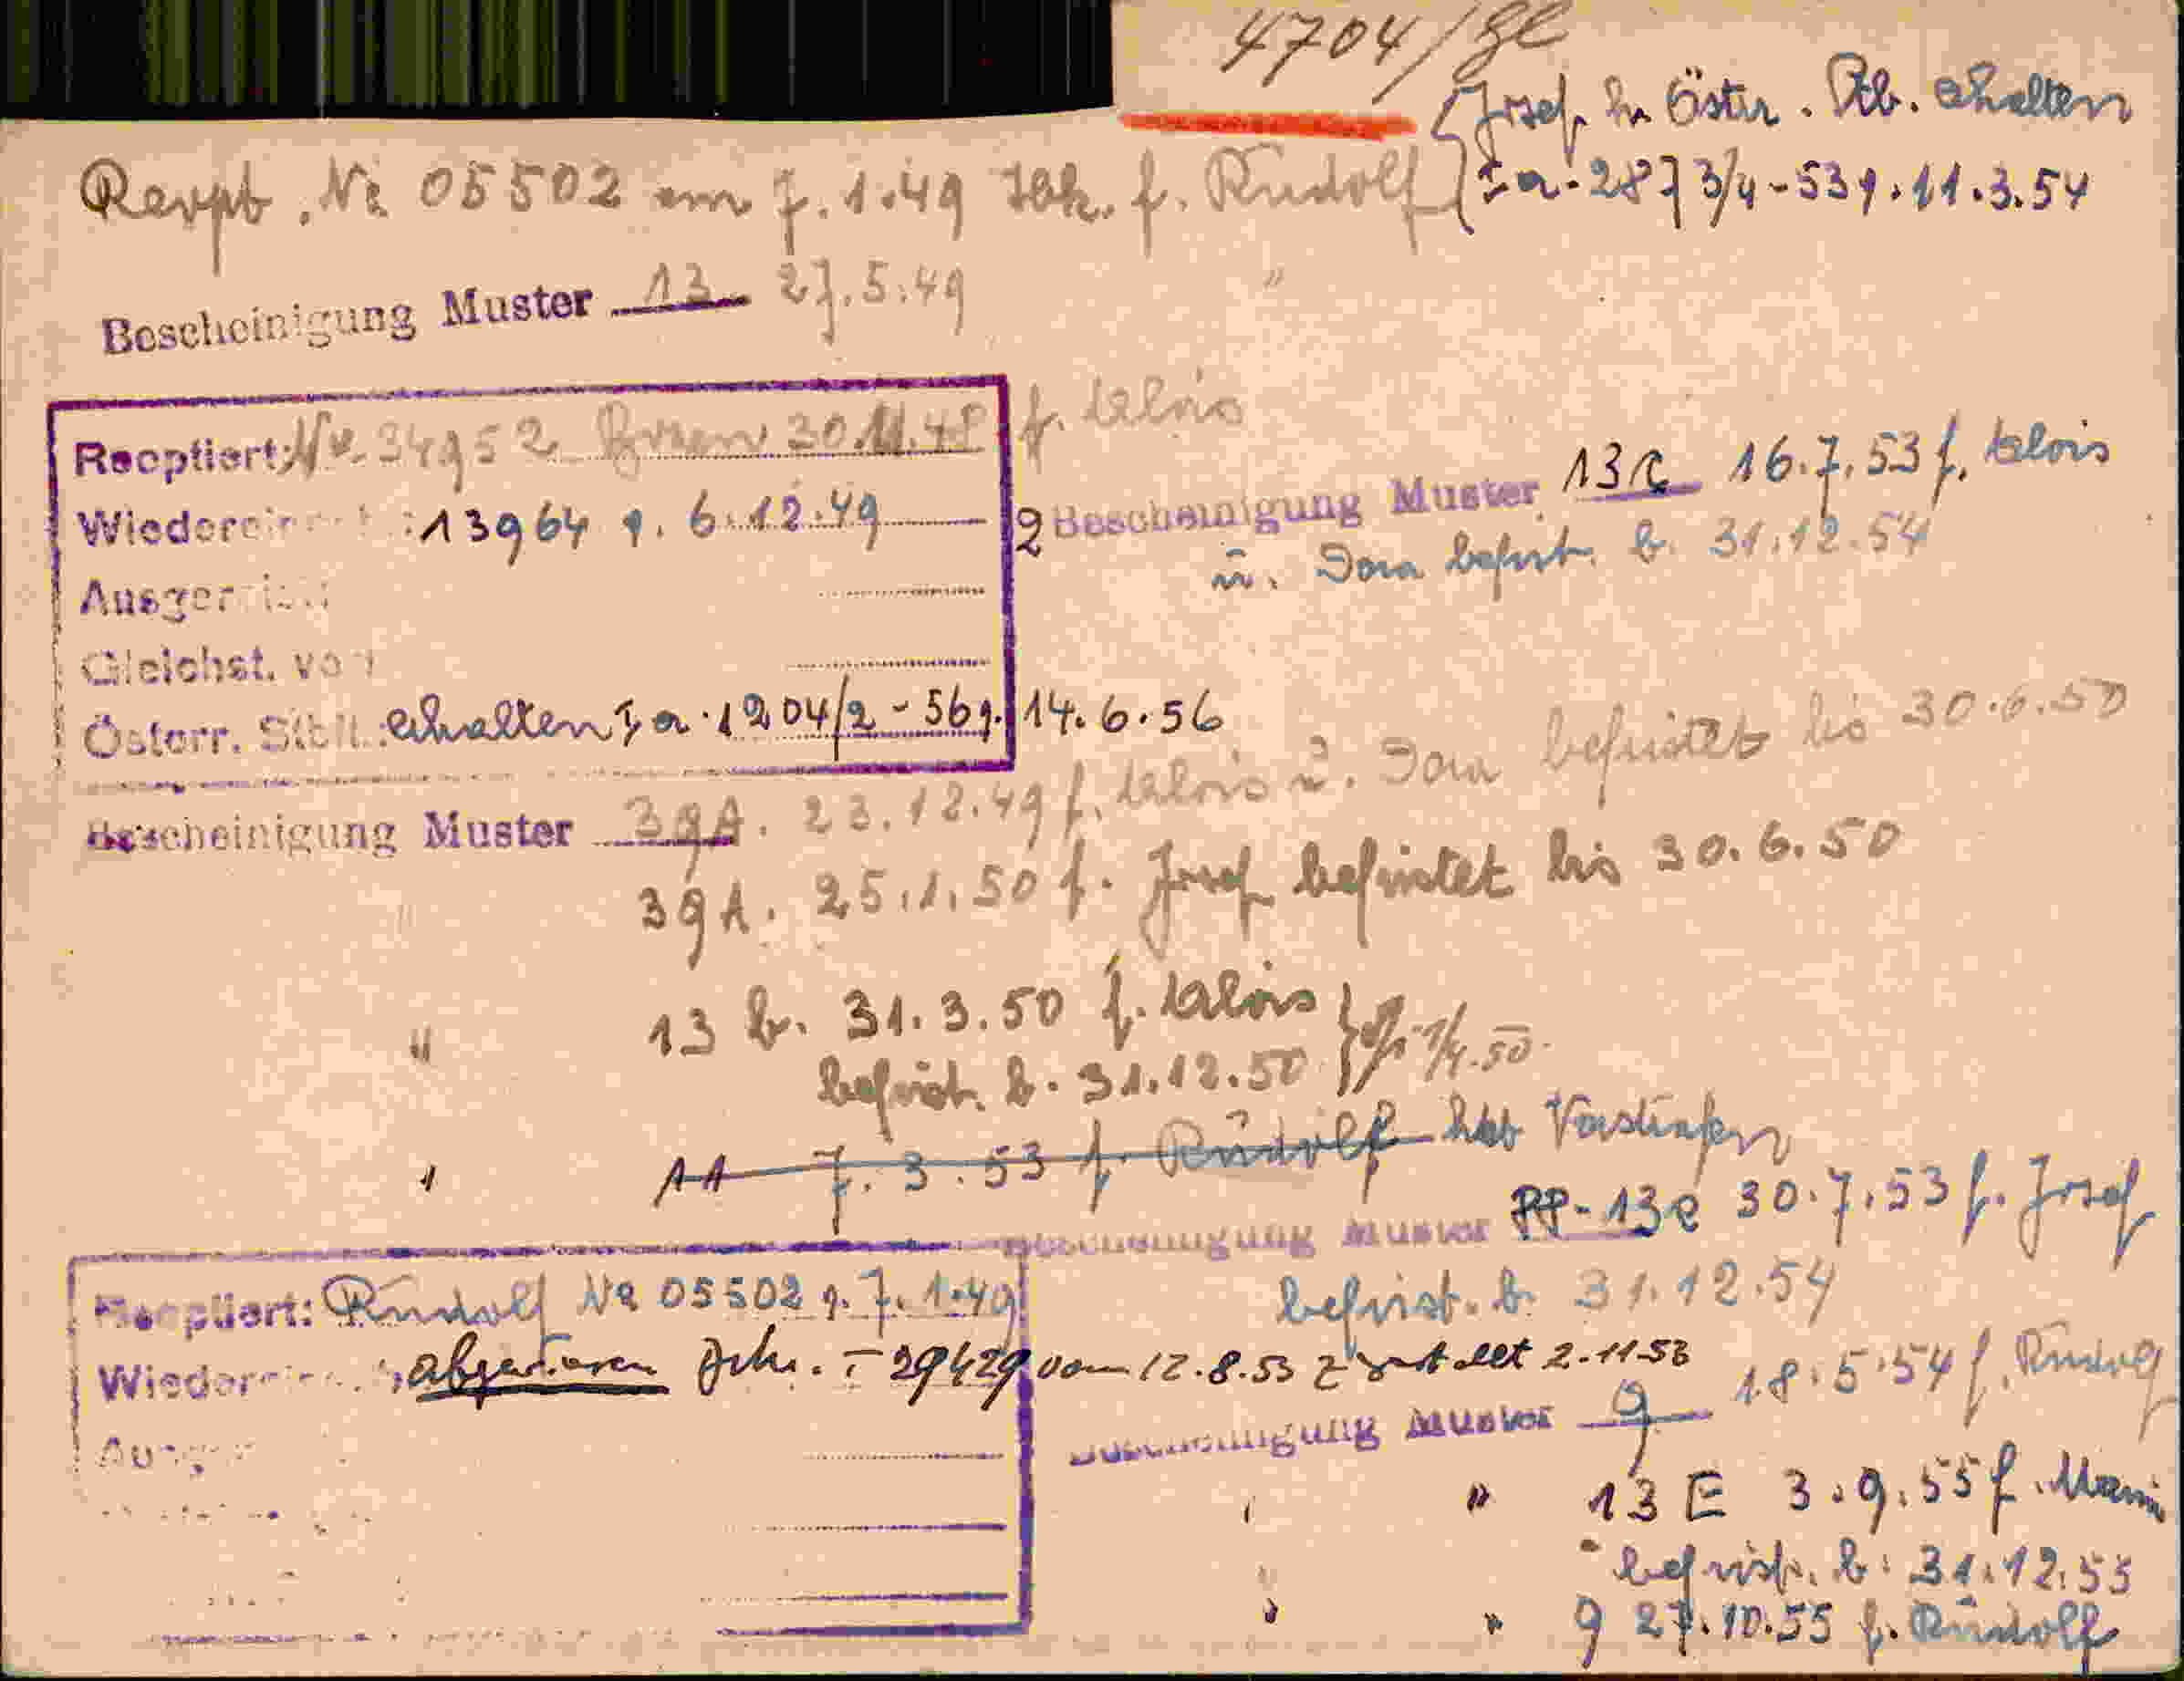 4704/
Josef h. Östr. Stb. erhalten
Rezept. Nr 05502 am 7.1.49 f. Rudolf I a-2873/4-53 g. 11.3.54
Bescheinigung Muster 13 27.5.49 "
Reoptiert: Nr 34952 Bozen 30.11.48 f. Alois
Wiedereinget.: 13964 g. 6.12.49
Bescheinigung Muster 13 16.7.53 f. Alois
u. Dora befrist. b. 31.12.54
Gleichst. von
Österr. Stb. : erhalten I a-1204/2-56 g. 14.6.56
Bescheinigung Muster 39A. 23.12.49 f. Alois u. Dora befristet bis 30.6.50
39A. 25.1.50 f. Josef befristet bis 30.6.50
" 13 b. 31.3.50 f. Alois
befrist. b. 31.12.50 1/4.50
" 11 7.3.53 f. Rudolf hat Vorstrafen
Bescheinigung Muster 13e 30.7.53 f. Josef
befrist. b. 31.12.54
Reoptiert: Rudolf Nr 05502 g. 7.1.49
abgewiesen 29429 vom 12.8.53 2.11.53
Bescheinigung Muster 9 18.5.54 f. Rudolf
" " 13 E 3.9.55 f.
befrist. b. 31.12.55
" " 9 27.10.55 f. Rudolf